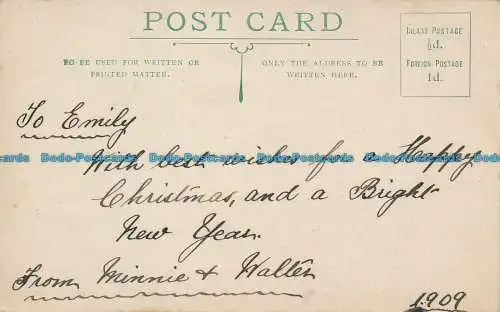 POST CARD
TO BE USED FOR WRITTEN OR
PRINTED MATTER.
ONLY THE ADDRESS TO BE
WRITTEN HERE.
INLAND POSTAGE
½d.
FOREIGN POSTAGE
1d.
To Emily
With best wishes for a Happy
Dodo-Postcards Dodo-Postcards Dodo-Postcards
Christmas, and a Bright
New Year.
From Minnie & Walter
1909